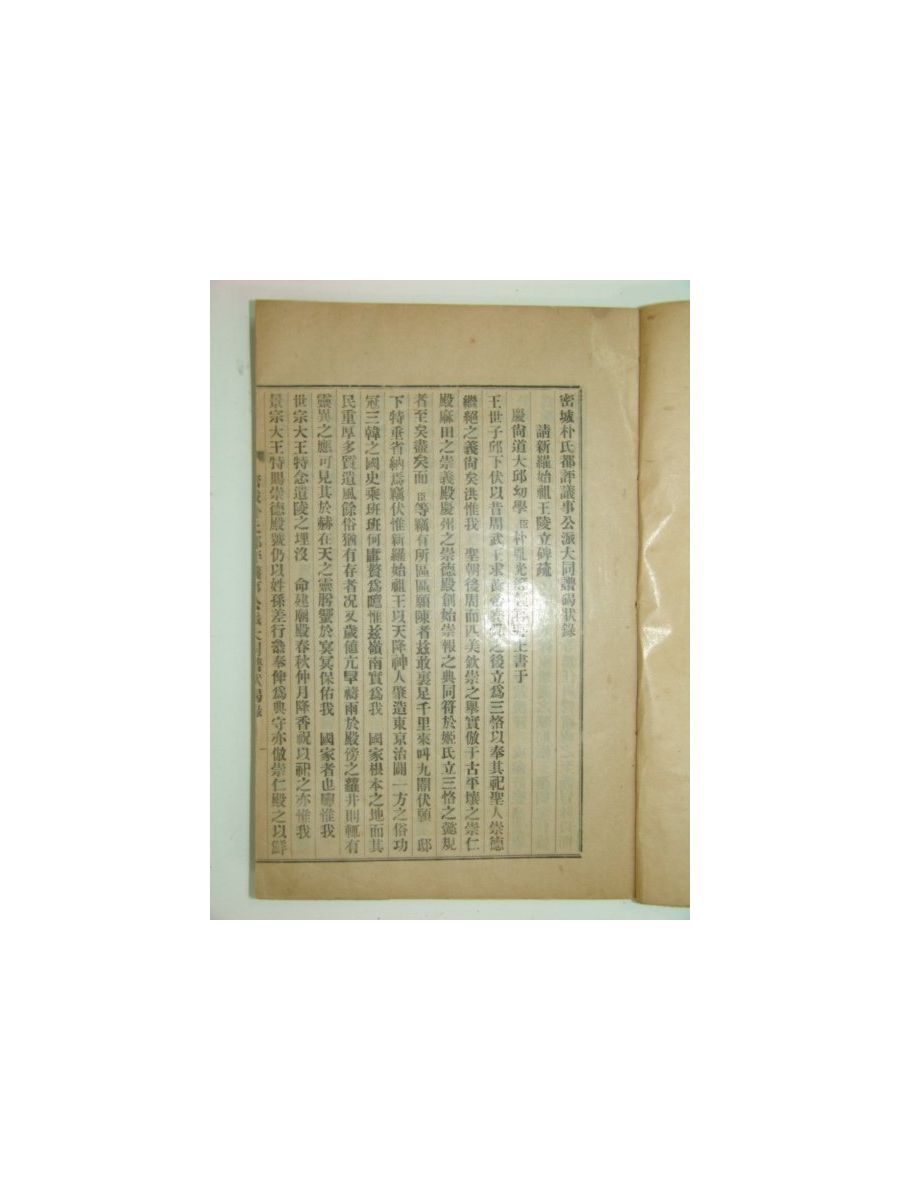 密城朴氏都評議事公派大同譜碣狀錄
請新羅始祖王陵立碑疏
慶尙道大邱幼學 臣 朴 光 上書于
王世子邸下伏以昔周武王求 之後立爲三恪以奉其祀聖人崇德
繼絕之義尙矣洪惟我 聖朝後周而匹美欽崇之擧實倣于古平壤之崇仁
殿麻田之崇義殿慶州之崇德殿創始崇報之典同符於姬氏立三恪之懿規
者至矣盡矣而 臣 等竊有所區區願陳者玆敢裹足千里來叫九閽伏願 邸
下特垂省納焉竊伏惟新羅始祖王以天降神人肇造東京治闢一方之俗功
冠三韓之國史乘班班何庸贅爲嗚惟玆嶺南實爲我 國家根本之地而其
民重厚多質遺風餘俗猶有存者况又歲値亢旱禱雨於殿傍之蘿井則輒有
靈異之應可見其於赫在天之靈肹蠁於冥冥保佑我 國家者也肆惟我
世宗大王特念遺陵之埋沒 命建廟殿春秋仲月降香祝以祀之亦惟我
景宗大王特賜崇德殿號仍以姓孫差行叅奉俾爲典守亦倣崇仁殿之以鮮